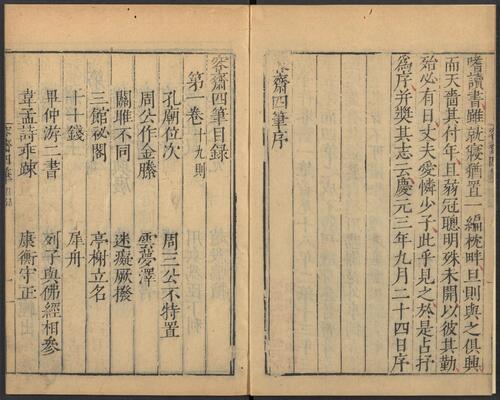 嗜讀書雖就寢猶置一編枕畔旦則與之俱興
而天嗇其付年且弱冠聰明殊未開以彼其勤
殆必有日丈夫愛憐少子此乎見之於是占抒
為序并獎其志云慶元三年九月二十四日序
容齋四筆序
容齋四筆目録
第一卷 十九則
孔廟位次 周三公不特置
周公作金縢 雲夢澤
關雎不同 迷癡厥撥
三館祕閣 亭榭立名
十十錢 犀舟
畢仲游二書 列子與佛經相參
韋孟詩乖踈 康衡守正